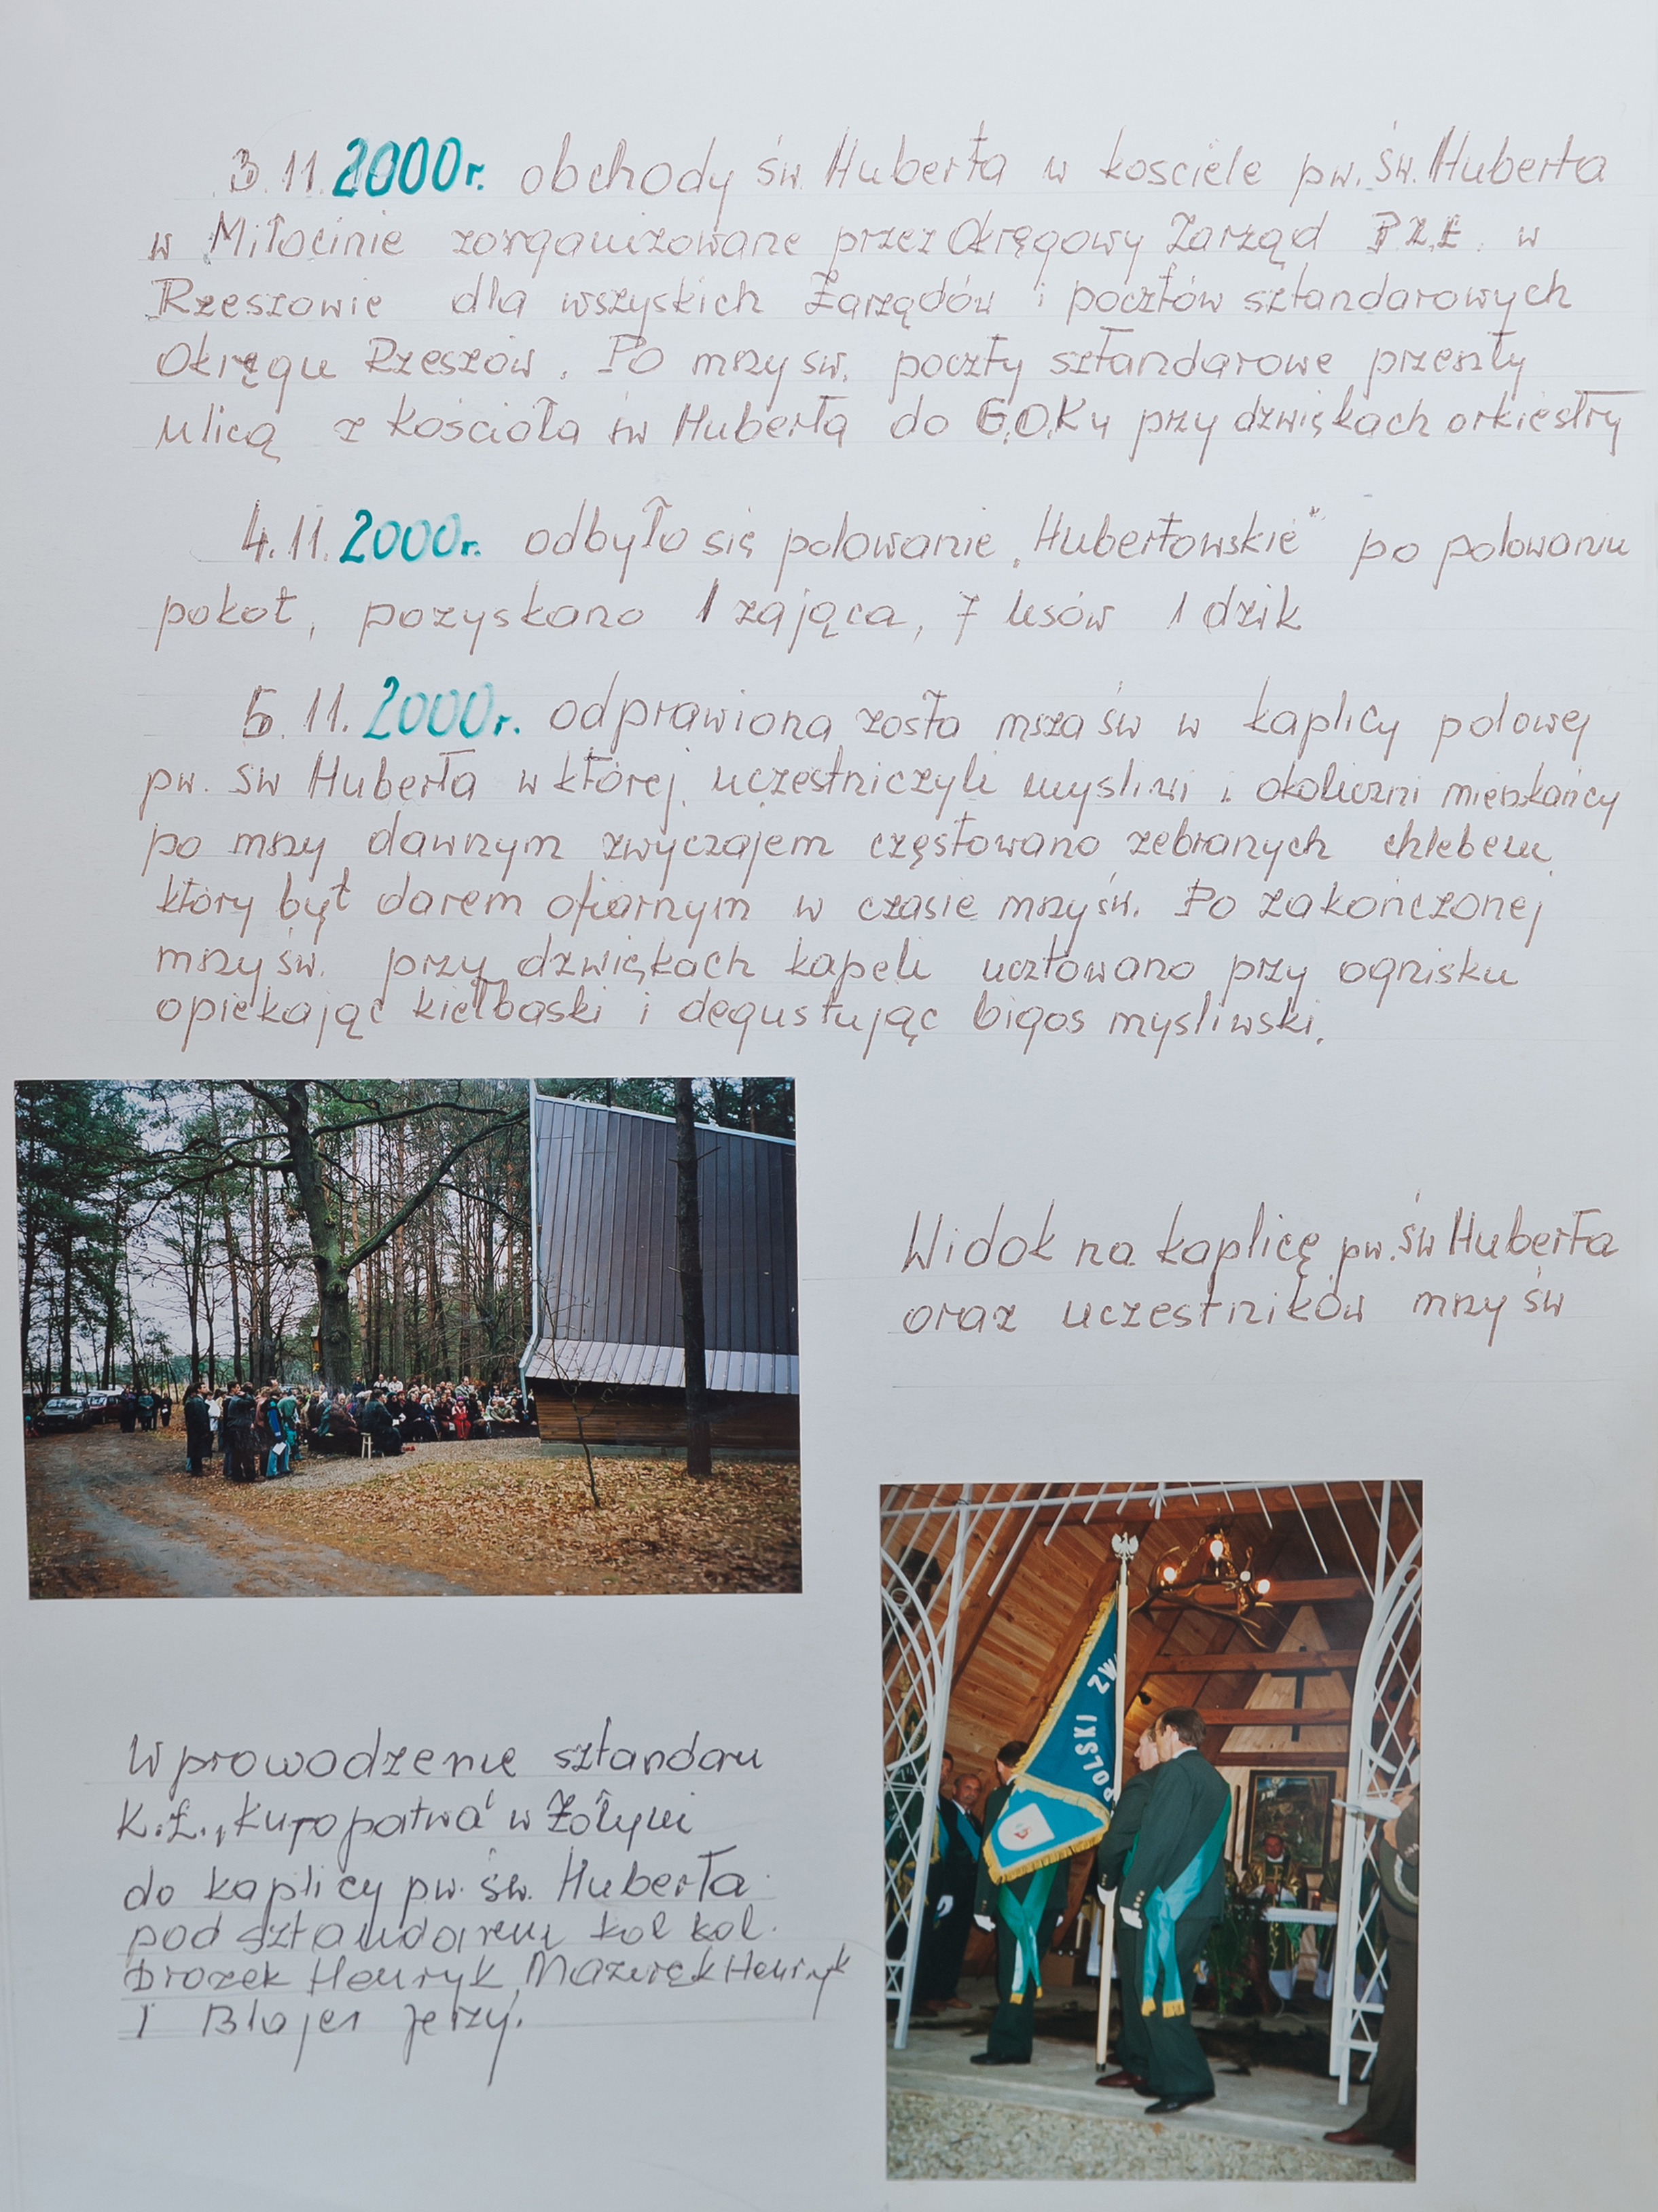 3.11.2000r. obchody św. Huberta w kosciele pw. św. Huberta
w Miłocinie zorganizowane przez Okręgowy Zarząd P.Z.Ł. w
Rzeszowie dla wszyskich Zarządów i pocztów sztandarowych
Okręgu Rzeszów. Po mszy św. poczty sztandarowe przeszły
ulicą z kościoła św Huberta do G.O.Ku przy dzwiękach orkiestry
4.11.2000r. odbyło się polowanie „Hubertowskie" po polowaniu
pokot, pozyskano 1 zająca, 7 lisów 1 dzik
5.11.2000r. odprawiona zosta msza św w kaplicy polowej
pw. św Huberta w której uczestniczyli mysliwi i okoliczni mieszkańcy
po mszy dawnym zwyczajem częstowano zebranych chlebem
który był darem ofiarnym w czasie mszy św. Po zakończonej
mszy św. przy dzwiękach kapeli ucztowano przy ognisku
opiekając kiełbaski i degustując bigos mysliwski.
Widok na kaplicę pw. św Huberta
oraz uczestników mszy św
ZW
POLSKI
Wprowodzenie sztandaru
K.Ł. „Kuropatwa" w Żołyni
do kaplicy pw. św. Huberta
pod sztandarem kol kol.
Drozek Henryk, Mazurek Henryk
I Blajer Jerzy.